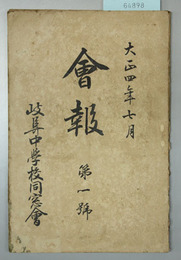 大正四年七月
會報
第一號
岐阜中学校同窓會